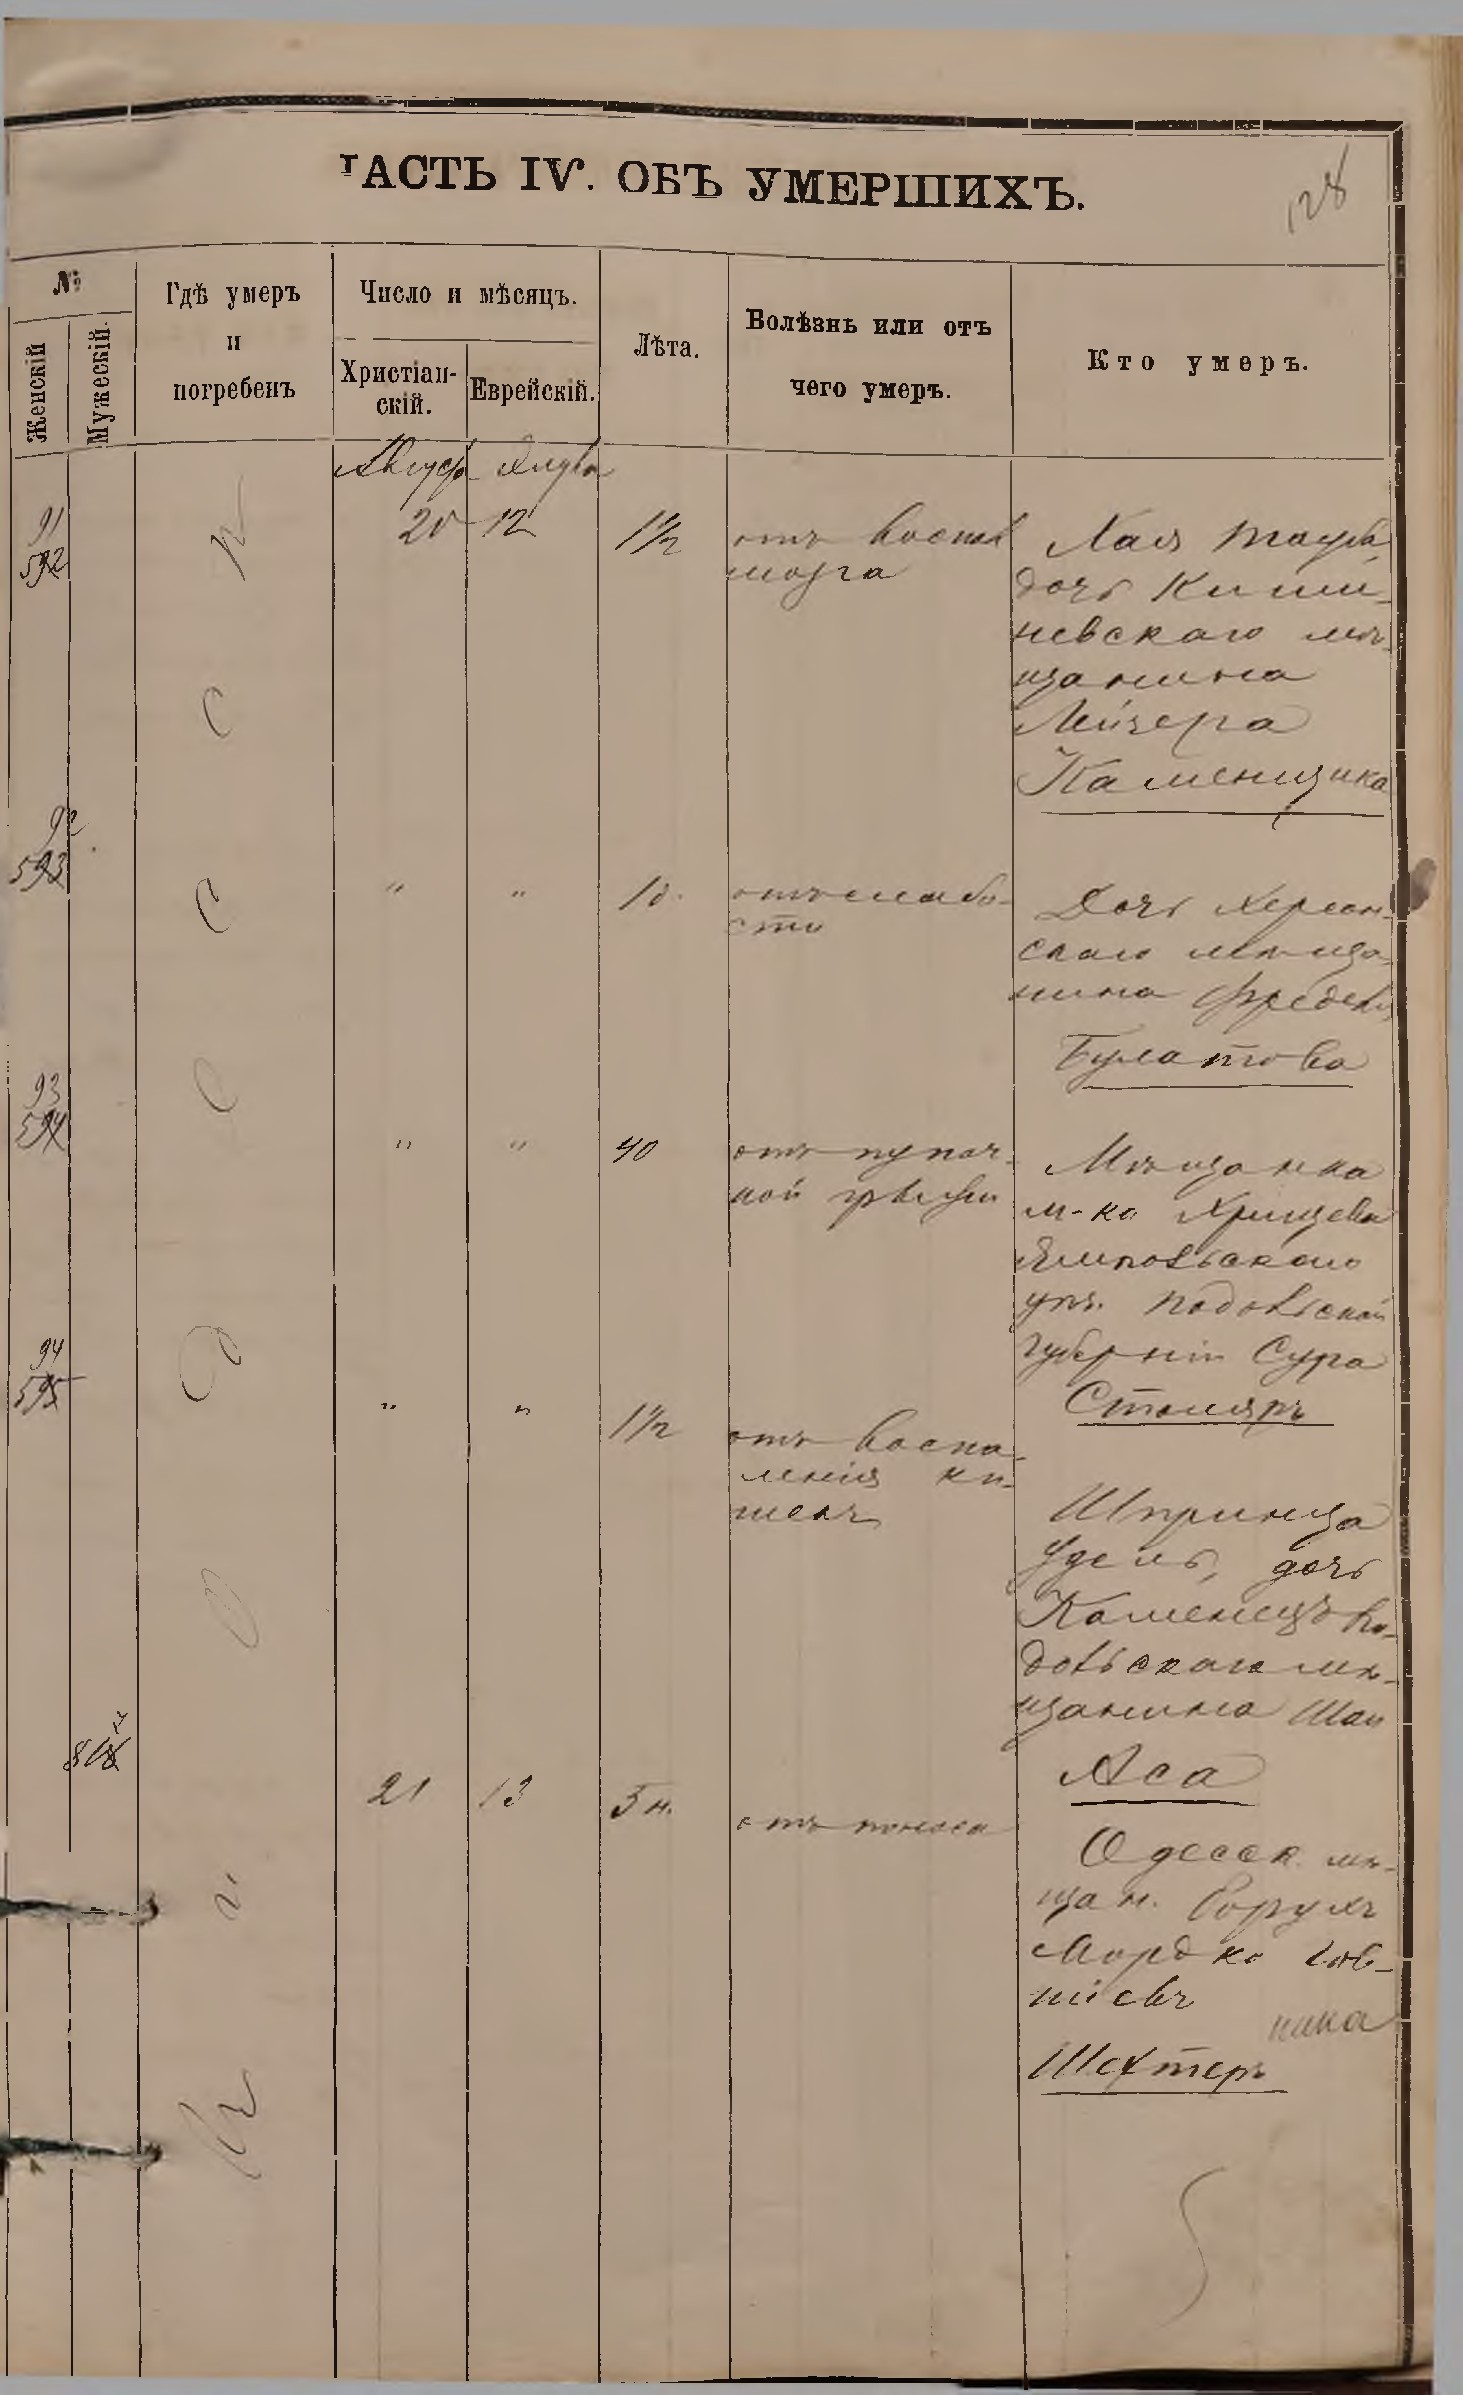 ЧАСТЬ IV. ОБЪ УМЕРШИХЪ.
128
№
Женскій
Мужескій.
Гдѣ умеръ
и
погребенъ
Число и мѣсяцъ.
Христіан-
скій.
Еврейскій.
Лѣта.
Болѣзнь или отъ
чего умеръ.
Кто умеръ.
Август Элула
91
592
20 12
1 1/2
отъ воспал
мозга
Хая Тауба,
дочь Киши-
невскаго мѣ-
щанина
Лейзера
Каменщика
92
593
" "
1 д.
отъ слабо-
сти
Дочь Херсон-
скаго мѣща-
нина
Булатова
93
594
" "
40
отъ пупоч-
ной грыжи
Мѣщанка
м-ка Хрищева
Ямпольскаго
уѣз. Подольской
губерніи Сура
Столяръ
94
595
" "
1 1/2
отъ воспа-
ленія ки-
шекъ
Шпринца
Удель, дочь
Каменецъ По-
дольскаго мѣ-
щанина Шаи
Аса
21 13
5 н.
отъ поноса
Одесск. мѣ-
щан. Борухъ
Мордко Іов-
ніевъ
ника
Шехтеръ